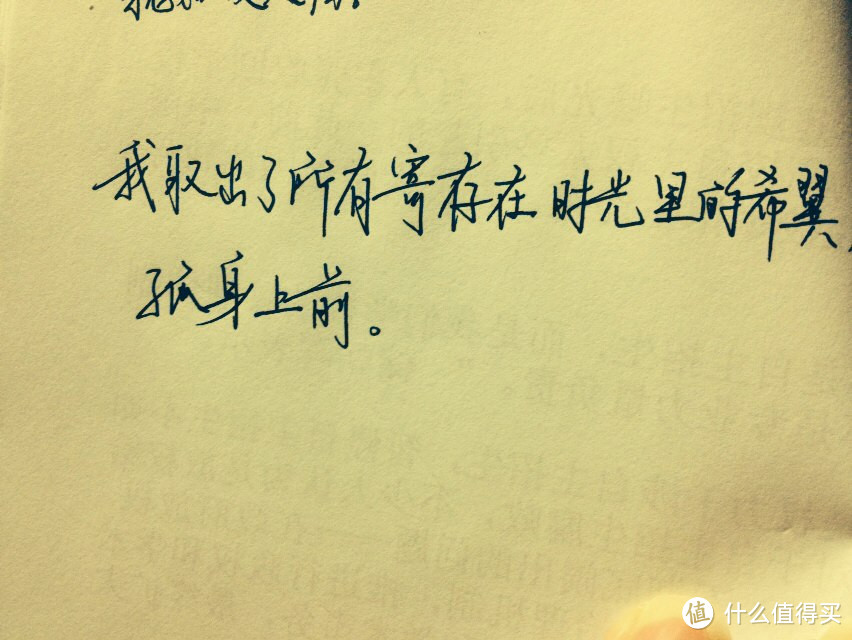 我取出了所有寄存在时光里的希翼,
孤身上前。
值 什么值得买